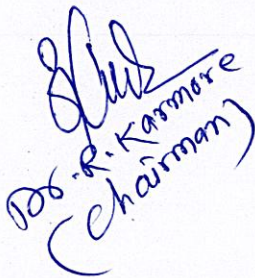 Dr. R. Karmore
(Chairman)